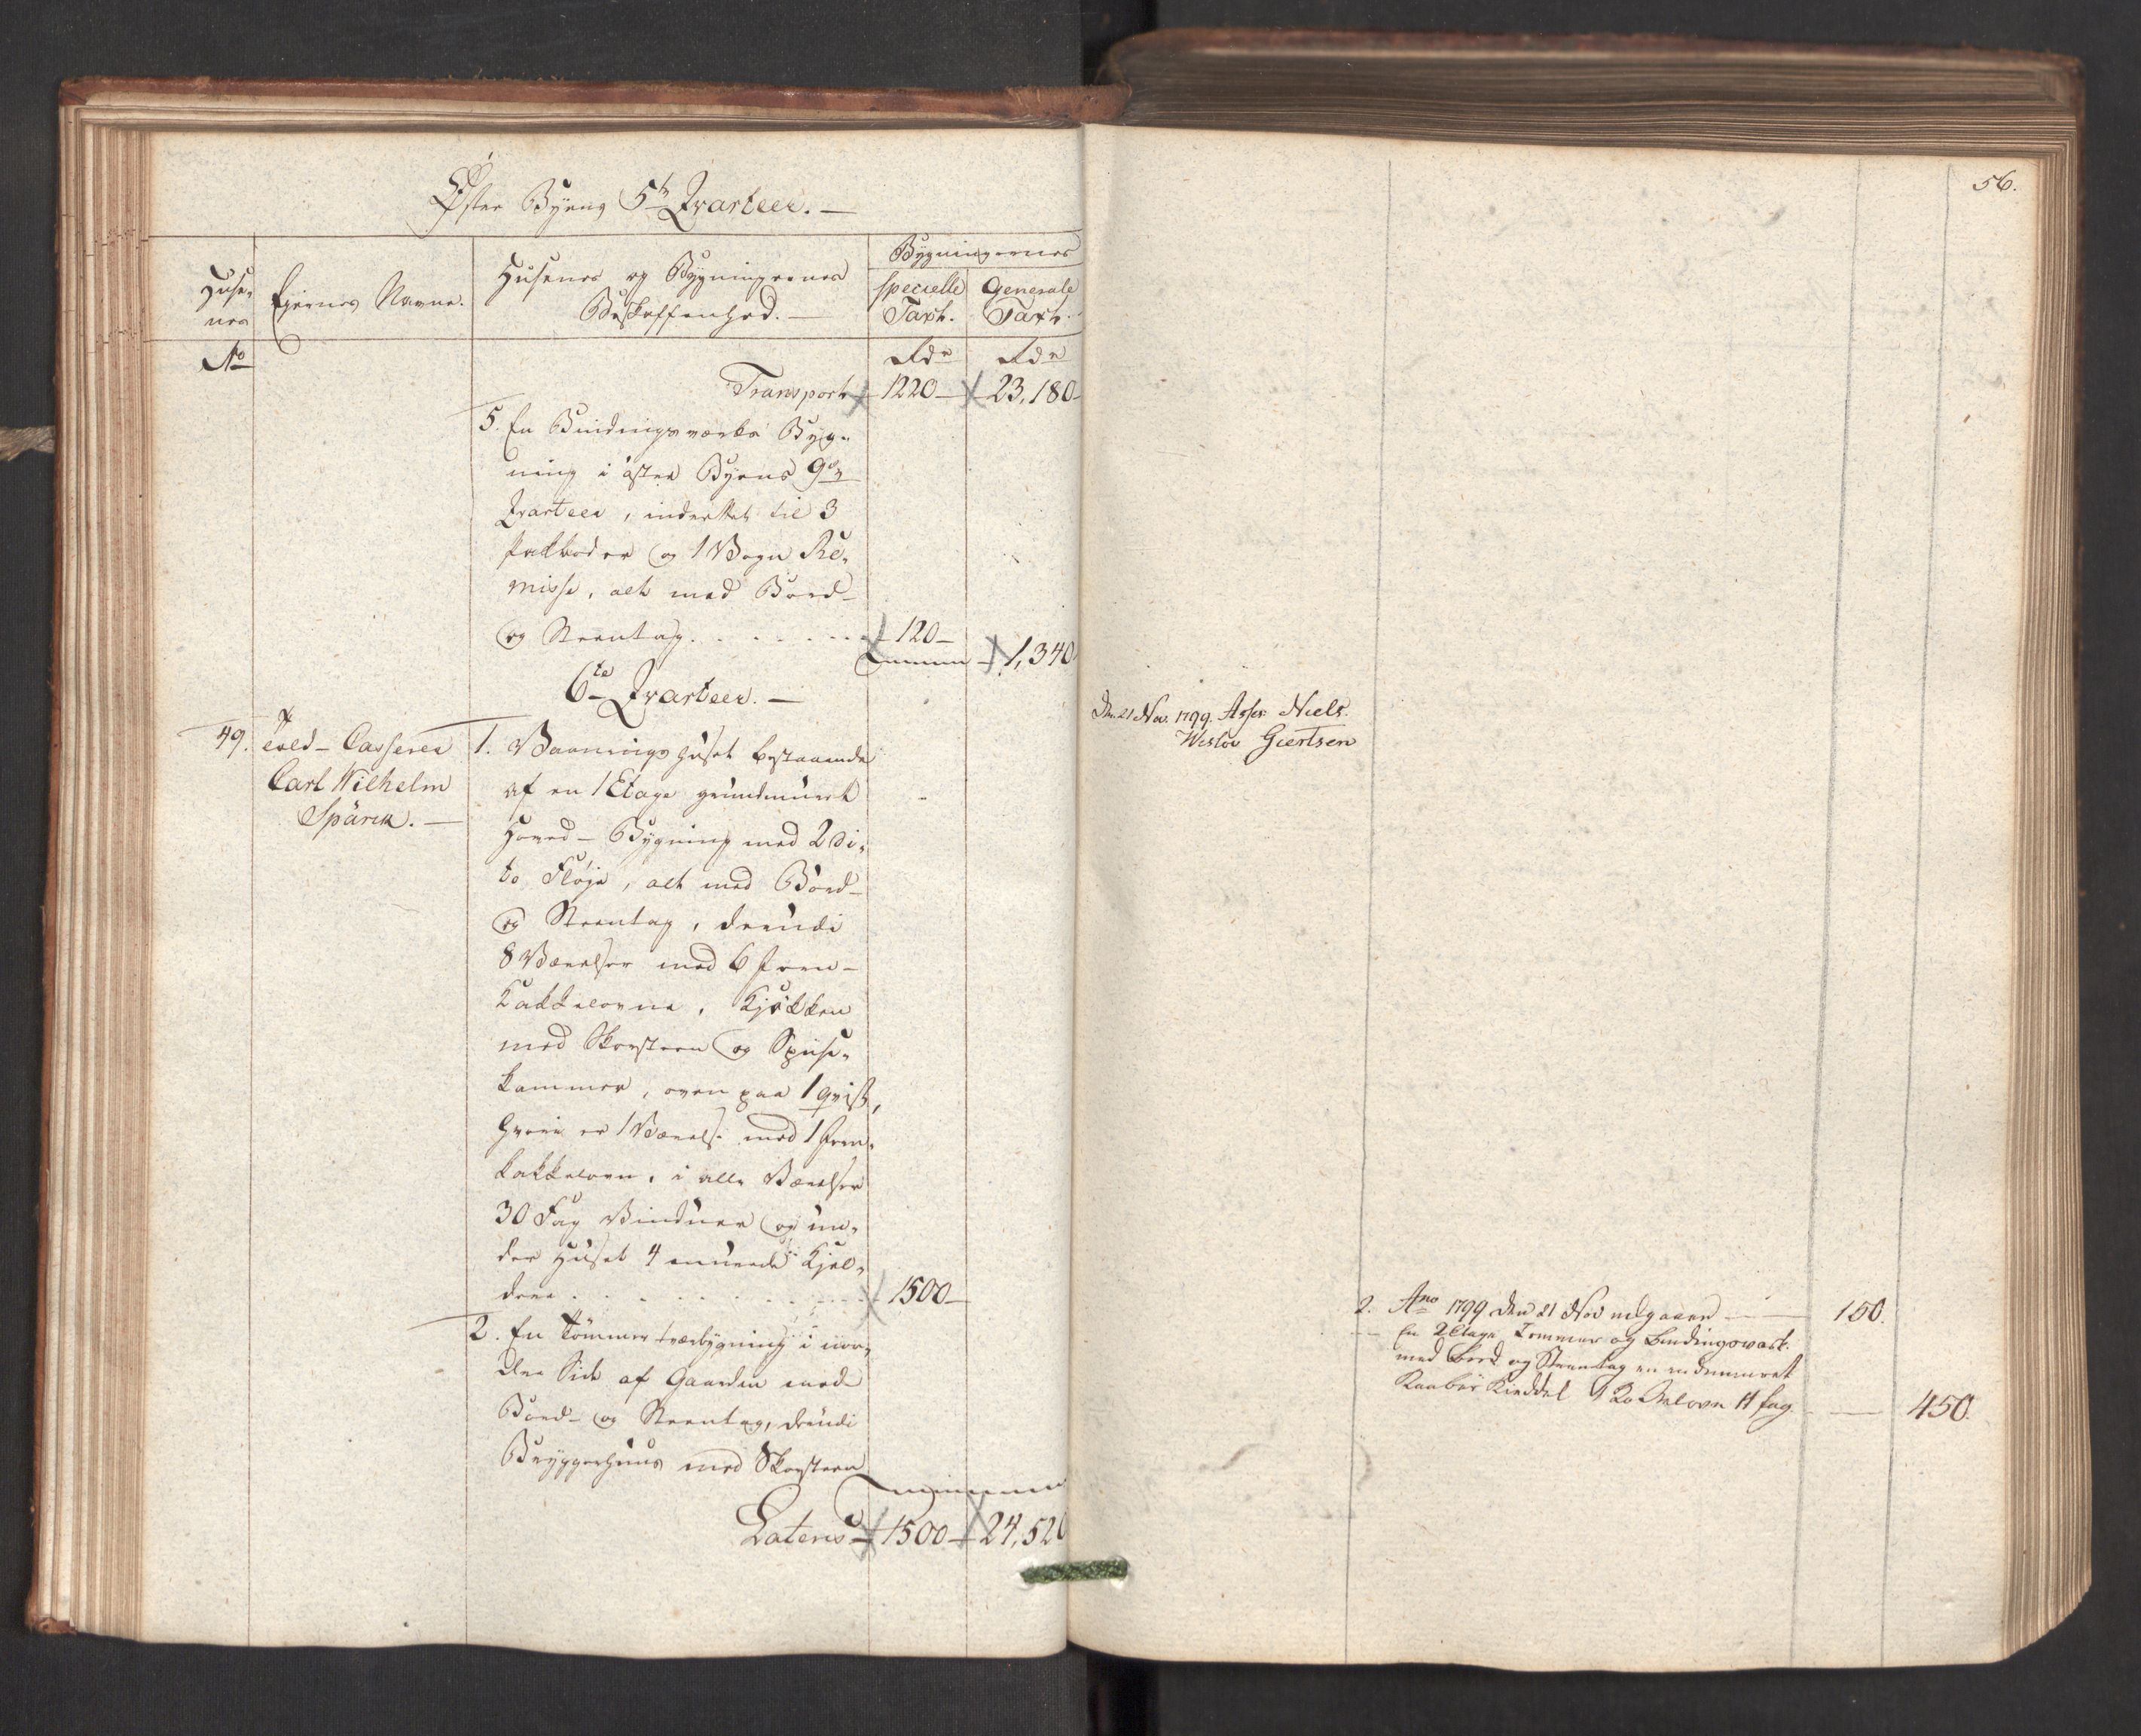 Øster Byens 5te Qvarteer. —
Huse-
nes
Ejernes Navne.
Husenes og Bygningernes
Beskaffenhed. —
Bygningernes
specielle
Taxt.
Generale
Taxt.
No
Rdr
Rdr
Transport 1220 — 23,180
5. En Bindingsværks Byg-
ning i øster Byens 9de
Qvarteer, indrettet til 3
Pakboder og 1 Vogn Re-
misse, alt med Bord-
og Steentag. . . . . . . 120 —
1,340
6te Qvarteer. —
49.
Told-Casserer
Carl Wilhelm
Spärck. —
1. Vaaningshuset bestaaende
af en 1 Etage grundmuurt
Hoved-Bygning med 2 di-
to Fløje, alt med Bord-
og Steentag, derudi
8 Værelser med 6 Jern-
Kakkelovne, Kjøkken
med Skorsteen og Spise-
kammer, oven paa 1 qvist,
hvori er 1 Værelse med 1 Jern-
kakkelovn, i alle Værelser
30 Fag Vinduer og un-
der Huset 4 muurede Kjel-
dere . . . . . . . . 1500 —
2. En Tømmer tværbygning i nor-
dre Side af Gaarden med
Bord- og Steentag, derudi
Bryggerhuus med Skorsteen
Lateris 1500 — 24,520
56.
Den 21 Nov. 1799. Asses Niels
Weslov Giertsen
2. Ano 1799 den 21 Nov udgaaer — 150.
En 2 Etage Tømmer og Bindingsværk
med Bord og Steentag en indmuret
Kielddel 1 Kakelovn 11 fag — 450.